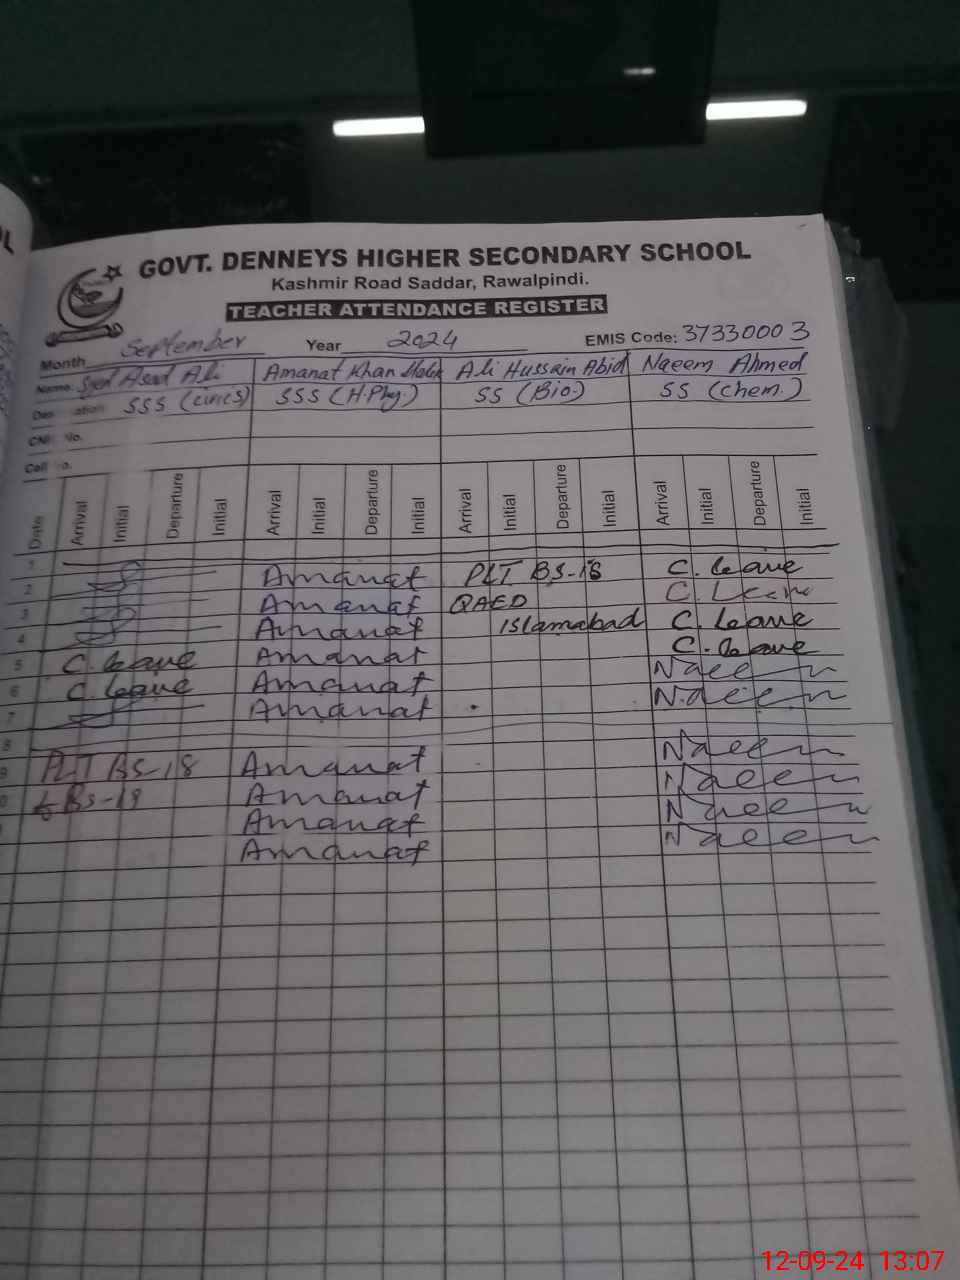 GOVT. DENNEYS HIGHER SECONDARY SCHOOL
Kashmir Road Saddar, Rawalpindi.
TEACHER ATTENDANCE REGISTER
Month September Year 2024 EMIS Code: 37330003
Name Syed Asad Ali Amanat Khan Malik Ali Hussain Abid Naeem Ahmed
SSS (civics) SSS (H.Phy.) SS (Bio.) SS (Chem.)
No.
Cell
Date Arrival Initial Departure Initial Arrival Initial Departure Initial Arrival Initial Departure Initial Arrival Initial Departure Initial
1
2 Amanat PLT BS-18 C. leave
3 Amanat QAED C. Leave
4 Amanat Islamabad C. leave
5 C. leave Amanat C. leave
6 C. leave Amanat Naeem
7 Amanat Naeem
8
9 PLT BS-18 Amanat Naeem
BS-19 Amanat Naeem
Amanat Naeem
Amanat Naeem
12-09-24 13:07